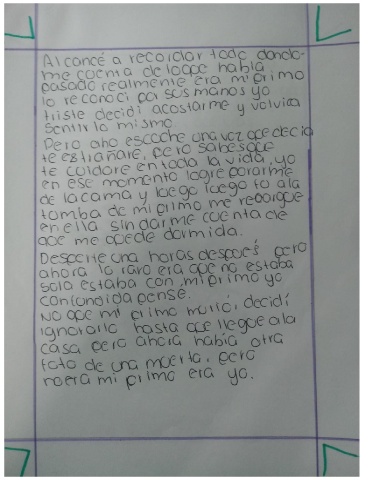 Alcancé a recordar todo dando-
me cuenta de loque había
pasado realmente era mi primo
lo reconocí por sus manos yo
triste decidí acostarme y volvi a
Sentir lo mismo
Pero aho escoche una voz que decia
te estrañare, pero sabesque
te cuidare en toda la vida, yo
en ese momento logre pararme
de la cama y luego luego fo ala
tomba de mi primo me recorgue
en ella sin darme cuenta de
que me quede dormida.
Desperte una horas después pero
ahora lo raro era que no estaba
sola estaba con mi primo yo
confondida pense.
No que mi primo murio, decidí
ignorarlo hasta que llegue a la
casa pero ahora había otra
foto de una muerta, pero
noera mi primo era yo.